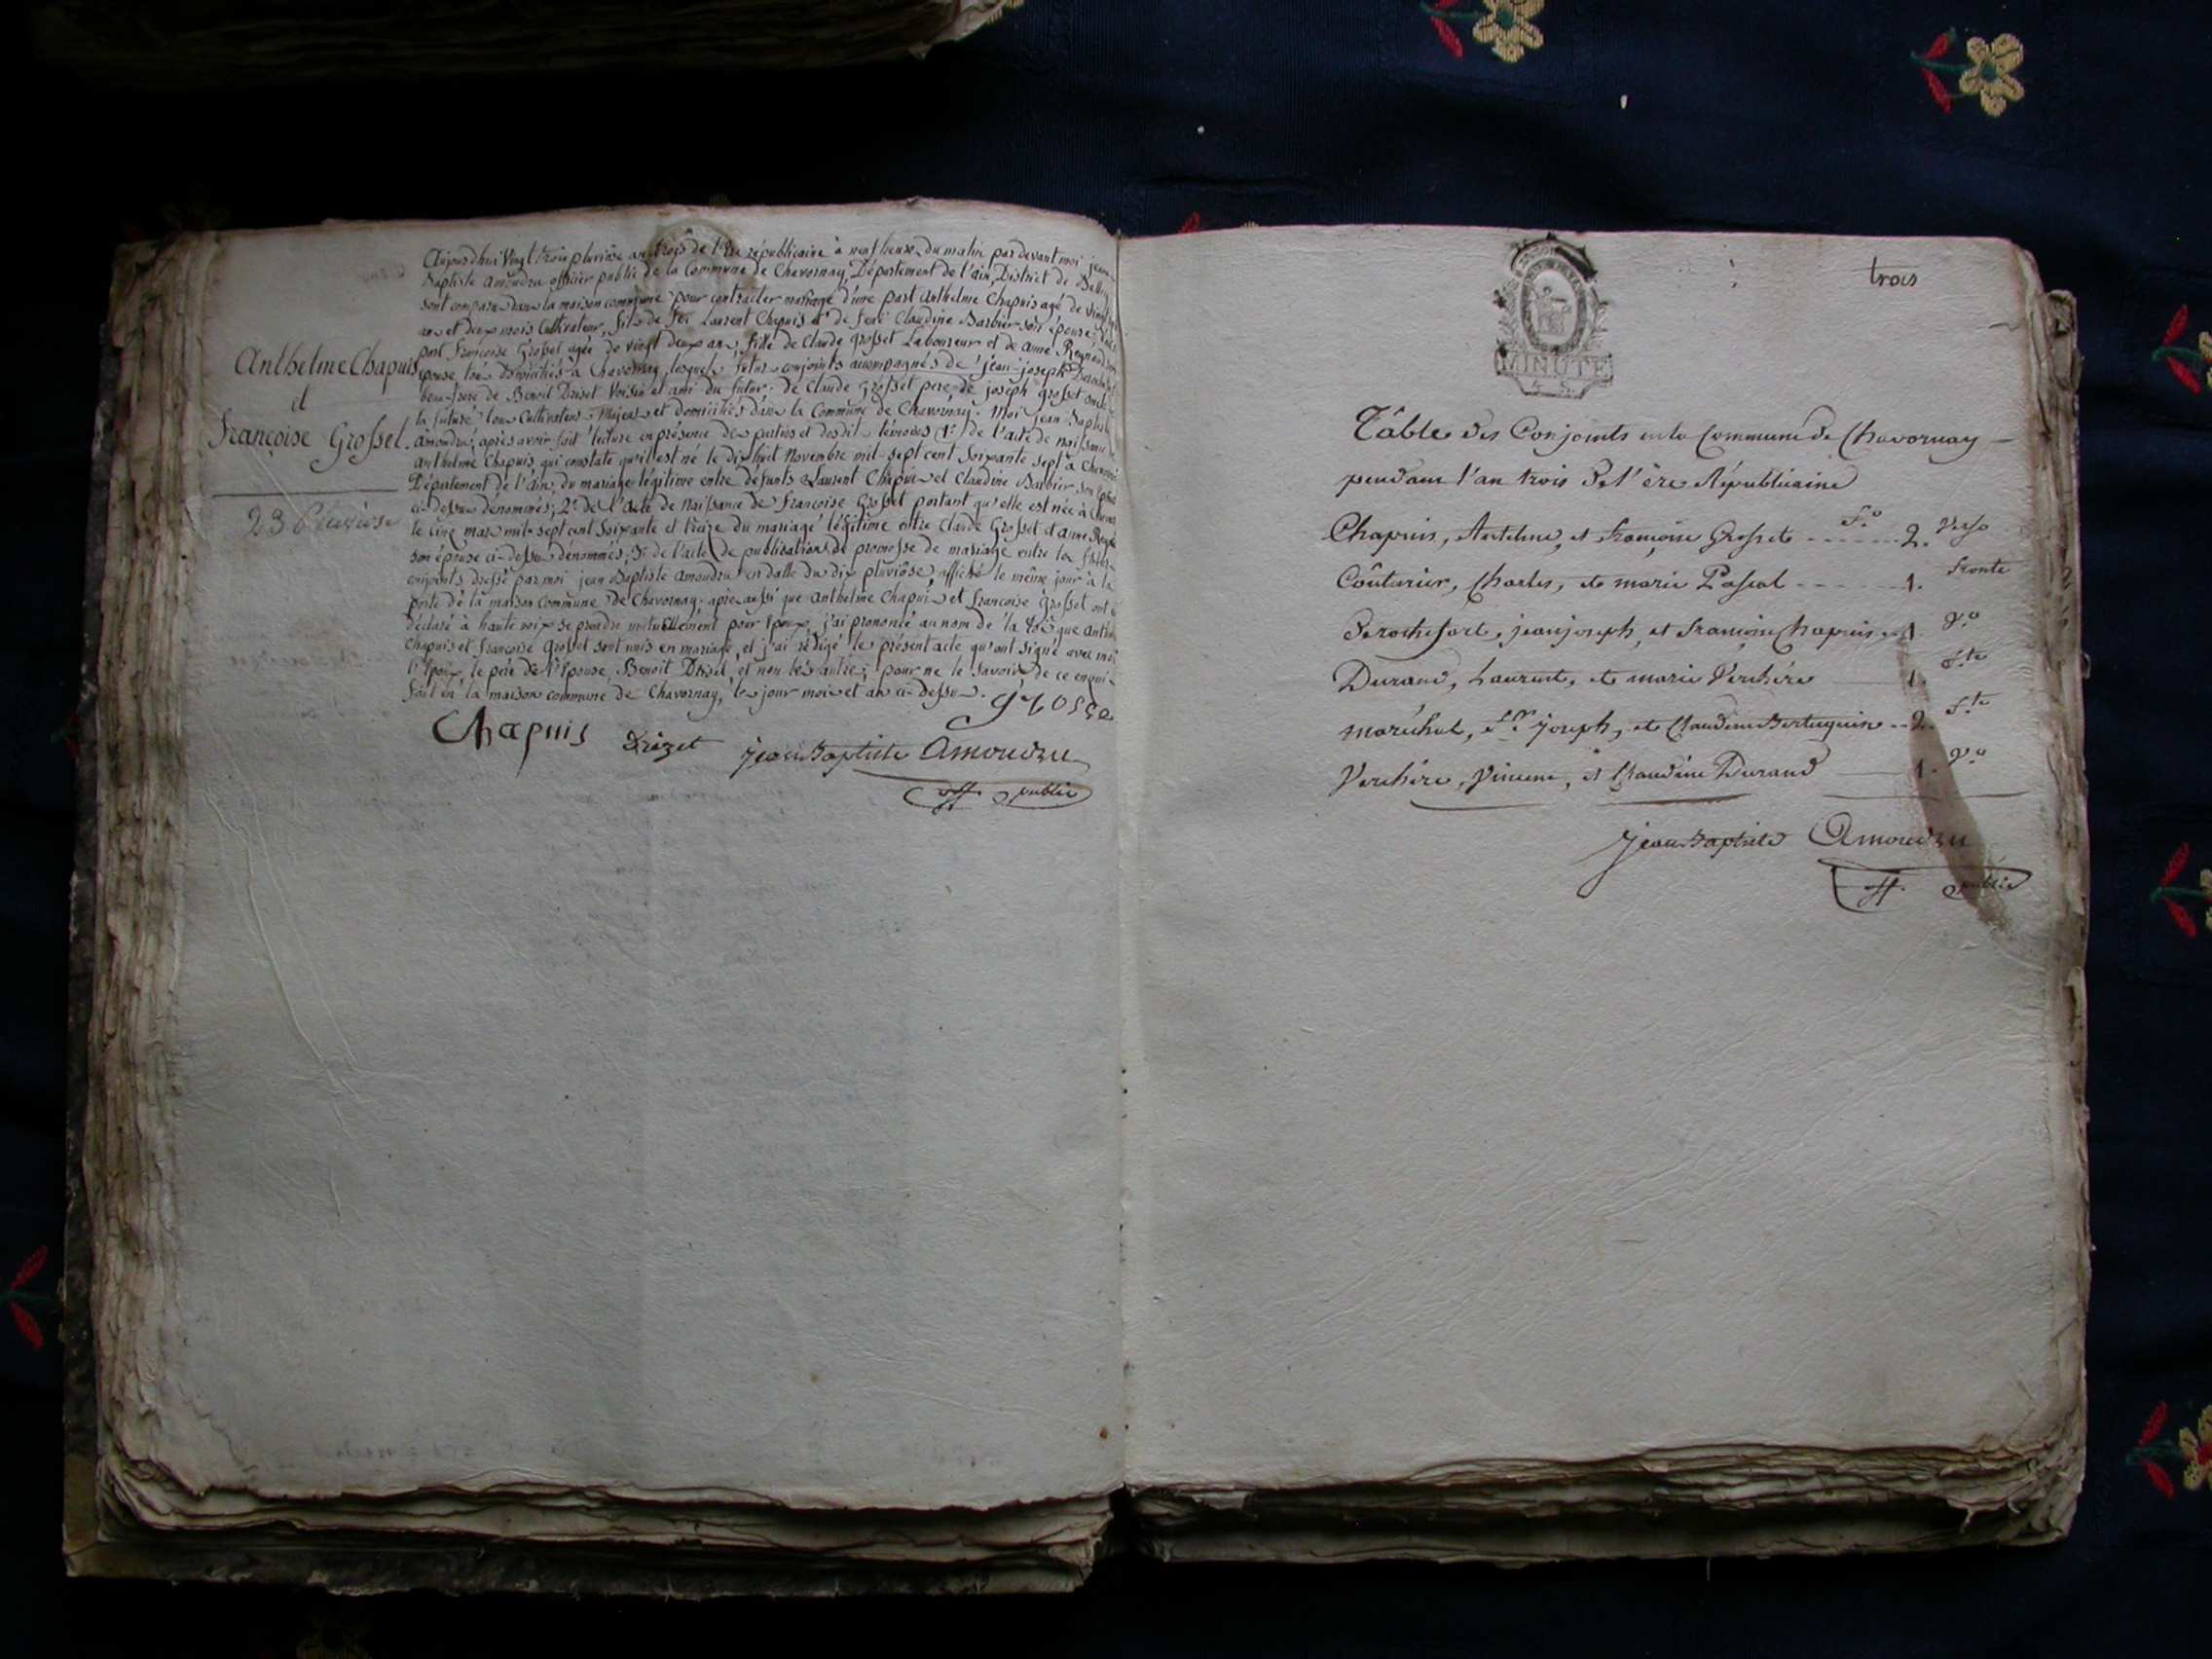 Anthelme Chapuis
et
Françoise Grosset.
23 Pluviose
Aujourdhui vingt trois pluviôse an trois de l'Ere républicaine à neuf heures du matin par devant moi jean
Baptiste Amoudru officier public de la Commune de Chavornay, Département de l'ain, District de Belley
sont comparu dans la maison commune pour contracter mariage d'une part Anthelme Chapuis agé de vingt
ans et deux mois Cultivateur, fils de feu Laurent Chapuis et de feue Claudine Barbier son épouse; d'autre
part Françoise Grosset agée de vingt deux ans, fille de Claude Grosset Laboureur et de anne
épouse, tous domiciliés à Chavornay, lesquels futurs conjoints accompagnés de jean-joseph
beau-frere de Benoit Driset Voisin et ami du futur; de Claude Grosset pere de joseph Grosset oncle de
la future tous Cultivateurs Majeurs et domiciliés dans la Commune de Chavornay. Moi jean Baptiste
Amoudru, après avoir fait lecture en présence des parties et desdits témoins 1º de l'acte de naissance
Anthelme Chapuis, qui constate qu'il est né le dix huit Novembre mil-sept cent soixante sept à
Département de l'ain, du mariage légitime entre défunts Laurent Chapuis et Claudine Barbier son épouse
ci-dessus dénommés; 2º de l'acte de Naissance de Françoise Grosset portant qu'elle est née à
le cinq mars mil-sept cent soixante et treize du mariage légitime entre Claude Grosset et anne
son épouse ci-dessus dénommés; 3º de l'acte de publication de promesse de mariage entre les futurs
conjoints dressé par moi jean Baptiste Amoudru en datte du dix pluviôse, affiché le même jour à la
porte de la maison Commune de Chavornay; après aussi que Anthelme Chapuis et françoise Grosset ont
déclaré à haute voix se prendre mutuellement pour époux, j'ai prononcé au nom de la loi que
Chapuis et Françoise Grosset sont unis en mariage, et j'ai rédigé le présent acte qu'ont signé avec moi
l'époux, le père de l'épouse, Benoit Driset, et non les autres; pour ne le savoir de ce enquis
fait en la maison commune de Chavornay, les jour mois et an ci-dessus.
Chapuis Drizet jean Baptiste Amoudru
off. public
trois
MINUTE
Table des Conjoints en la Commune de Chavornay
pendant l'an trois de l'ère Républicaine
Chapuis, Antelme, et françoise Grosset ------ fº 2. Verso
Coûturier, Charles, et marie Pascal ------ 1. fronte
Derochefort, jeanjoseph, et françoise Chapuis -- 1. vº
Durand, Laurent, et marie Verchère 1. fte
maréchal, joseph, et Claudine -- 2. fte
Verchère, Vincent, et Claudine Durand 1. vº
jean Baptiste Amoudru
off. public